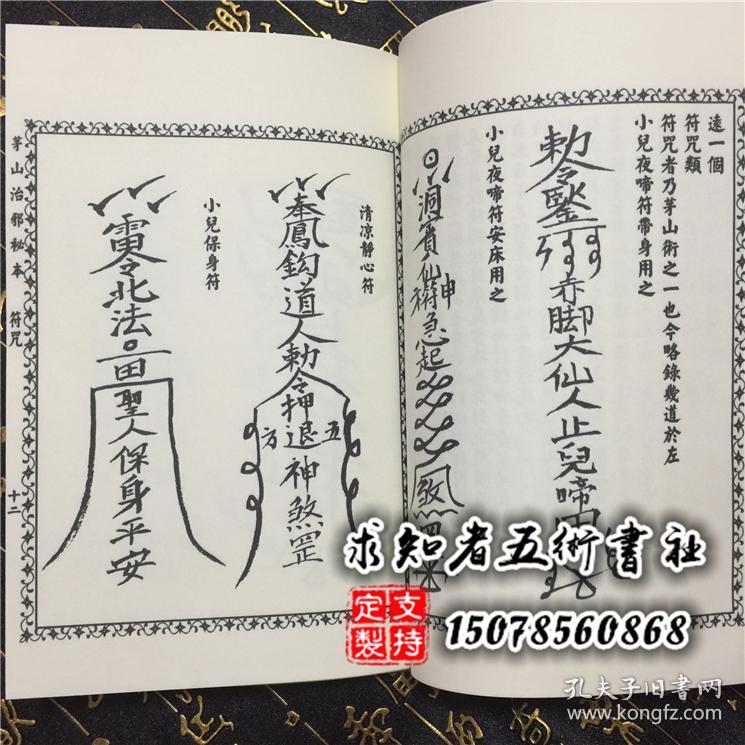 遠一個
符咒類
符咒者乃茅山術之一也今略錄幾道於左
小兒夜啼符帶身用之
勅令
赤脚大仙人止兒啼
小兒夜啼符安床用之
洞賓仙
神符急起
煞罡
清凉静心符
奉鳳鈎道人勅令押退神煞罡
五方
小兒保身符
雷令北法
聖人保身平安
茅山治邪秘本
符咒
十二
求知者五術書社
支持定製
15078560868
孔夫子旧書网
www.kongfz.com